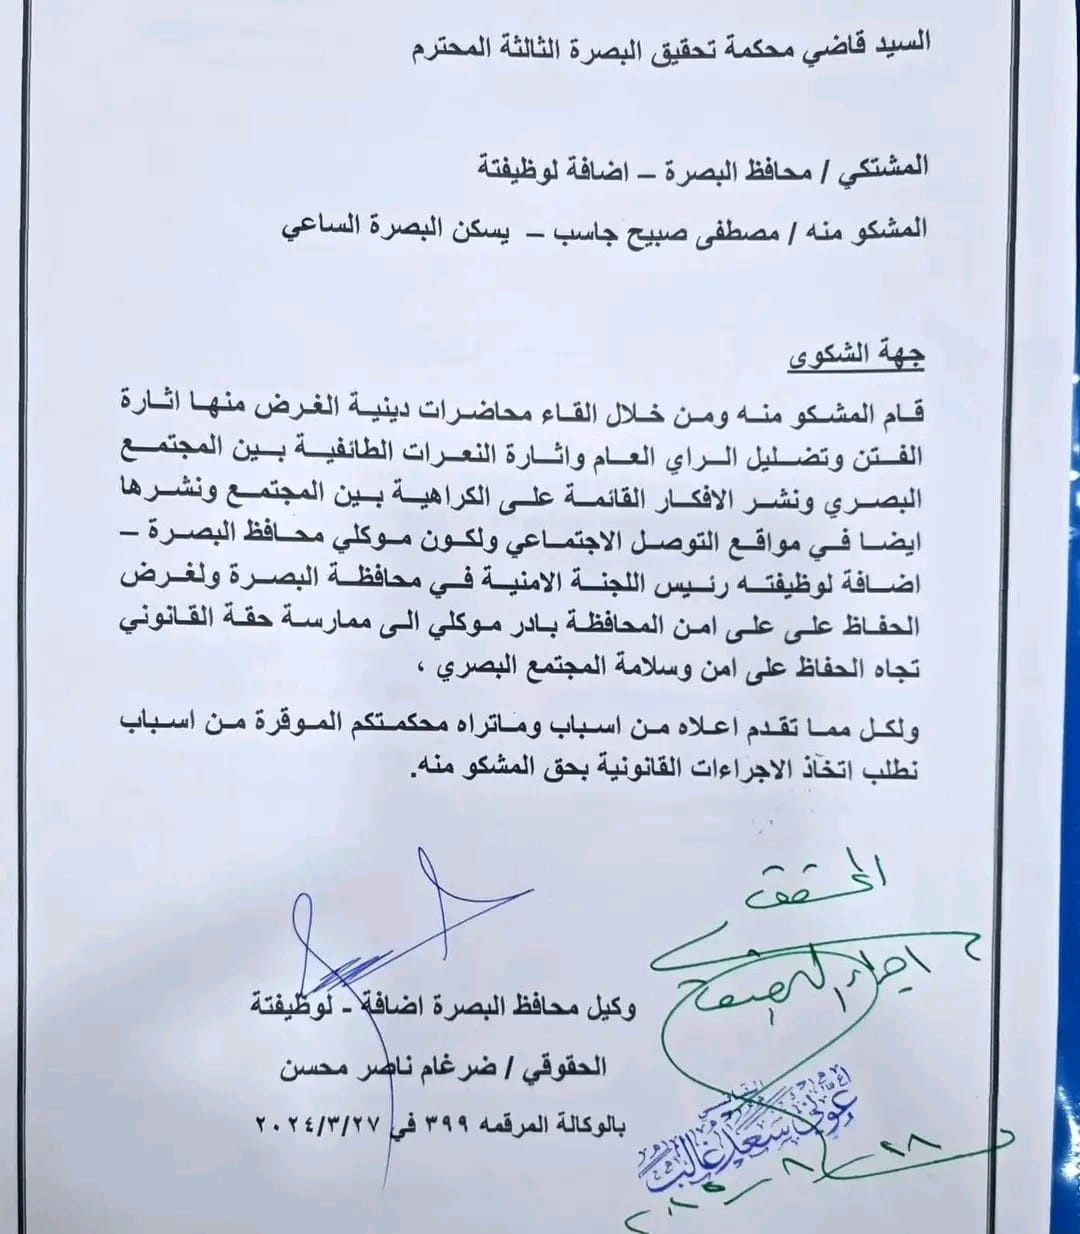 السيد قاضي محكمة تحقيق البصرة الثالثة المحترم
المشتكي / محافظ البصرة – اضافة لوظيفتة
المشكو منه / مصطفى صبيح جاسب – يسكن البصرة الساعي
جهة الشكوى
قام المشكو منه ومن خلال القاء محاضرات دينية الغرض منها اثارة
الفتن وتضليل الراي العام واثارة النعرات الطائفية بين المجتمع
البصري ونشر الافكار القائمة على الكراهية بين المجتمع ونشرها
ايضا في مواقع التوصل الاجتماعي ولكون موكلي محافظ البصرة –
اضافة لوظيفته رئيس اللجنة الامنية في محافظة البصرة ولغرض
الحفاظ على على امن المحافظة بادر موكلي الى ممارسة حقة القانوني
تجاه الحفاظ على امن وسلامة المجتمع البصري ،
ولكل مما تقدم اعلاه من اسباب وماتراه محكمتكم الموقرة من اسباب
نطلب اتخاذ الاجراءات القانونية بحق المشكو منه.
المحقق
اجراء
وكيل محافظ البصرة اضافة - لوظيفتة
الحقوقي / ضرغام ناصر محسن
بالوكالة المرقمه ٣٩٩ في ٢٠٢٤/٣/٢٧
القاضي
عوني سعد غالب